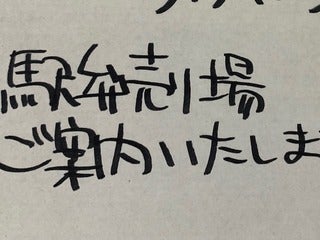 駅弁売り場
ご案内いたしま